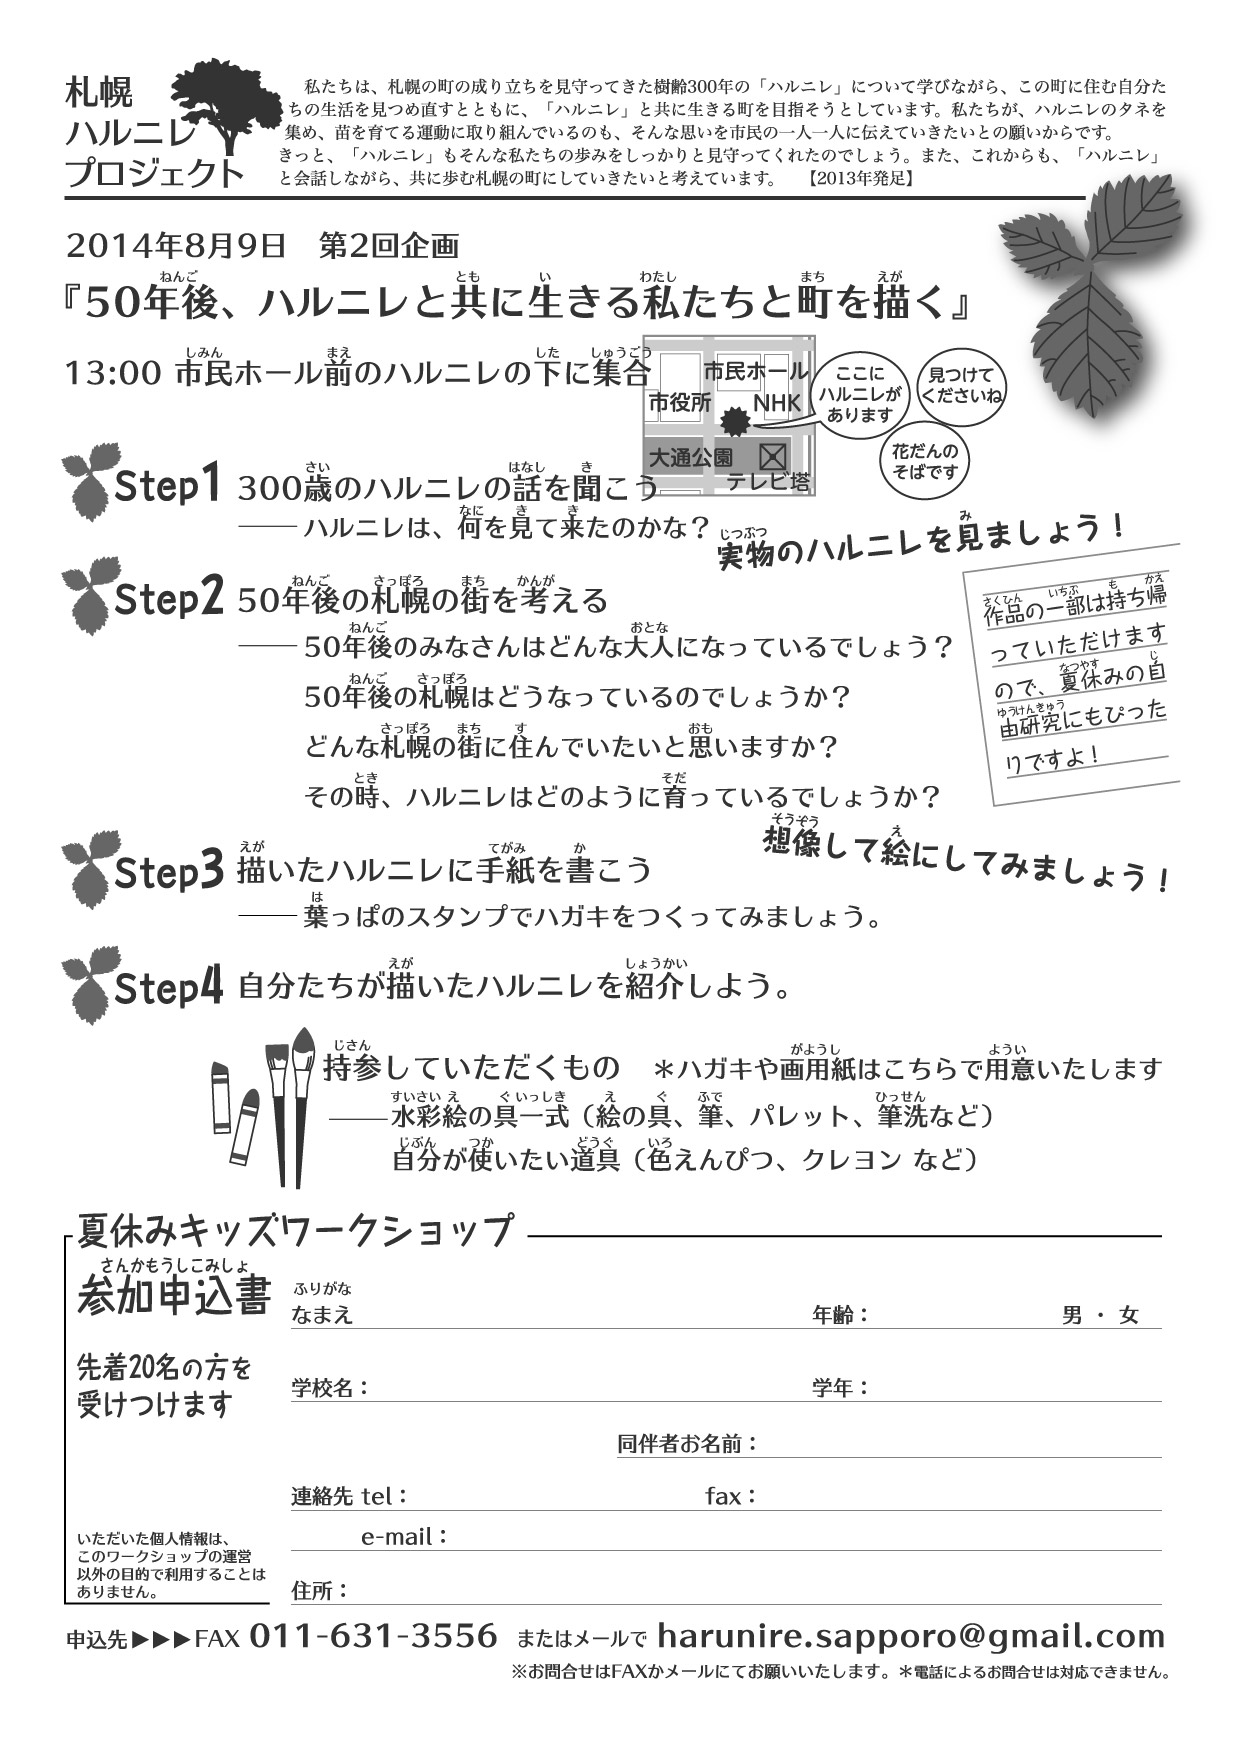 札幌
ハルニレ
プロジェクト
私たちは、札幌の町の成り立ちを見守ってきた樹齢300年の「ハルニレ」について学びながら、この町に住む自分た
ちの生活を見つめ直すとともに、「ハルニレ」と共に生きる町を目指そうとしています。私たちが、ハルニレのタネを
集め、苗を育てる運動に取り組んでいるのも、そんな思いを市民の一人一人に伝えていきたいとの願いからです。
きっと、「ハルニレ」もそんな私たちの歩みをしっかりと見守ってくれたのでしょう。また、これからも、「ハルニレ」
と会話しながら、共に歩む札幌の町にしていきたいと考えています。　【2013年発足】
2014年8月9日　第2回企画
ねんご とも い わたし まち えが
『50年後、ハルニレと共に生きる私たちと町を描く』
しみん まえ した しゅうごう
13:00 市民ホール前のハルニレの下に集合
市民ホール
市役所 NHK
大通公園
テレビ塔
ここに
ハルニレが
あります
見つけて
くださいね
花だんの
そばです
さい はなし き
Step1 300歳のハルニレの話を聞こう
なに き き
――ハルニレは、何を見て来たのかな？
じつぶつ み
実物のハルニレを見ましょう！
ねんご さっぽろ まち かんが
Step2 50年後の札幌の街を考える
ねんご おとな
――50年後のみなさんはどんな大人になっているでしょう？
ねんご さっぽろ
50年後の札幌はどうなっているのでしょうか？
さっぽろ まち す おも
どんな札幌の街に住んでいたいと思いますか？
とき そだ
その時、ハルニレはどのように育っているでしょうか？
さくひん いちぶ も かえ
作品の一部は持ち帰
っていただけます
なつやす じ
ので、夏休みの自
ゆうけんきゅう
由研究にもぴった
りですよ！
そうぞう え
想像して絵にしてみましょう！
えが てがみ か
Step3 描いたハルニレに手紙を書こう
は
――葉っぱのスタンプでハガキをつくってみましょう。
えが しょうかい
Step4 自分たちが描いたハルニレを紹介しよう。
じさん がようし ようい
持参していただくもの　＊ハガキや画用紙はこちらで用意いたします
すいさい え ぐ いっしき え ぐ ふで ひっせん
――水彩絵の具一式（絵の具、筆、パレット、筆洗など）
じぶん つか どうぐ いろ
自分が使いたい道具（色えんぴつ、クレヨン など）
夏休みキッズワークショップ
さんかもうしこみしょ
参加申込書
先着20名の方を
受けつけます
いただいた個人情報は、
このワークショップの運営
以外の目的で利用することは
ありません。
ふりがな
なまえ 年齢： 男 ・ 女
学校名： 学年：
同伴者お名前：
連絡先 tel： fax：
e-mail：
住所：
申込先▶▶▶FAX 011-631-3556 またはメールで harunire.sapporo@gmail.com
※お問合せはFAXかメールにてお願いいたします。＊電話によるお問合せは対応できません。